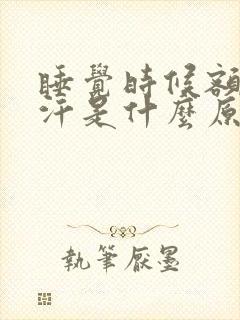 睡覺時候額
汗是什麼原
執筆厭墨